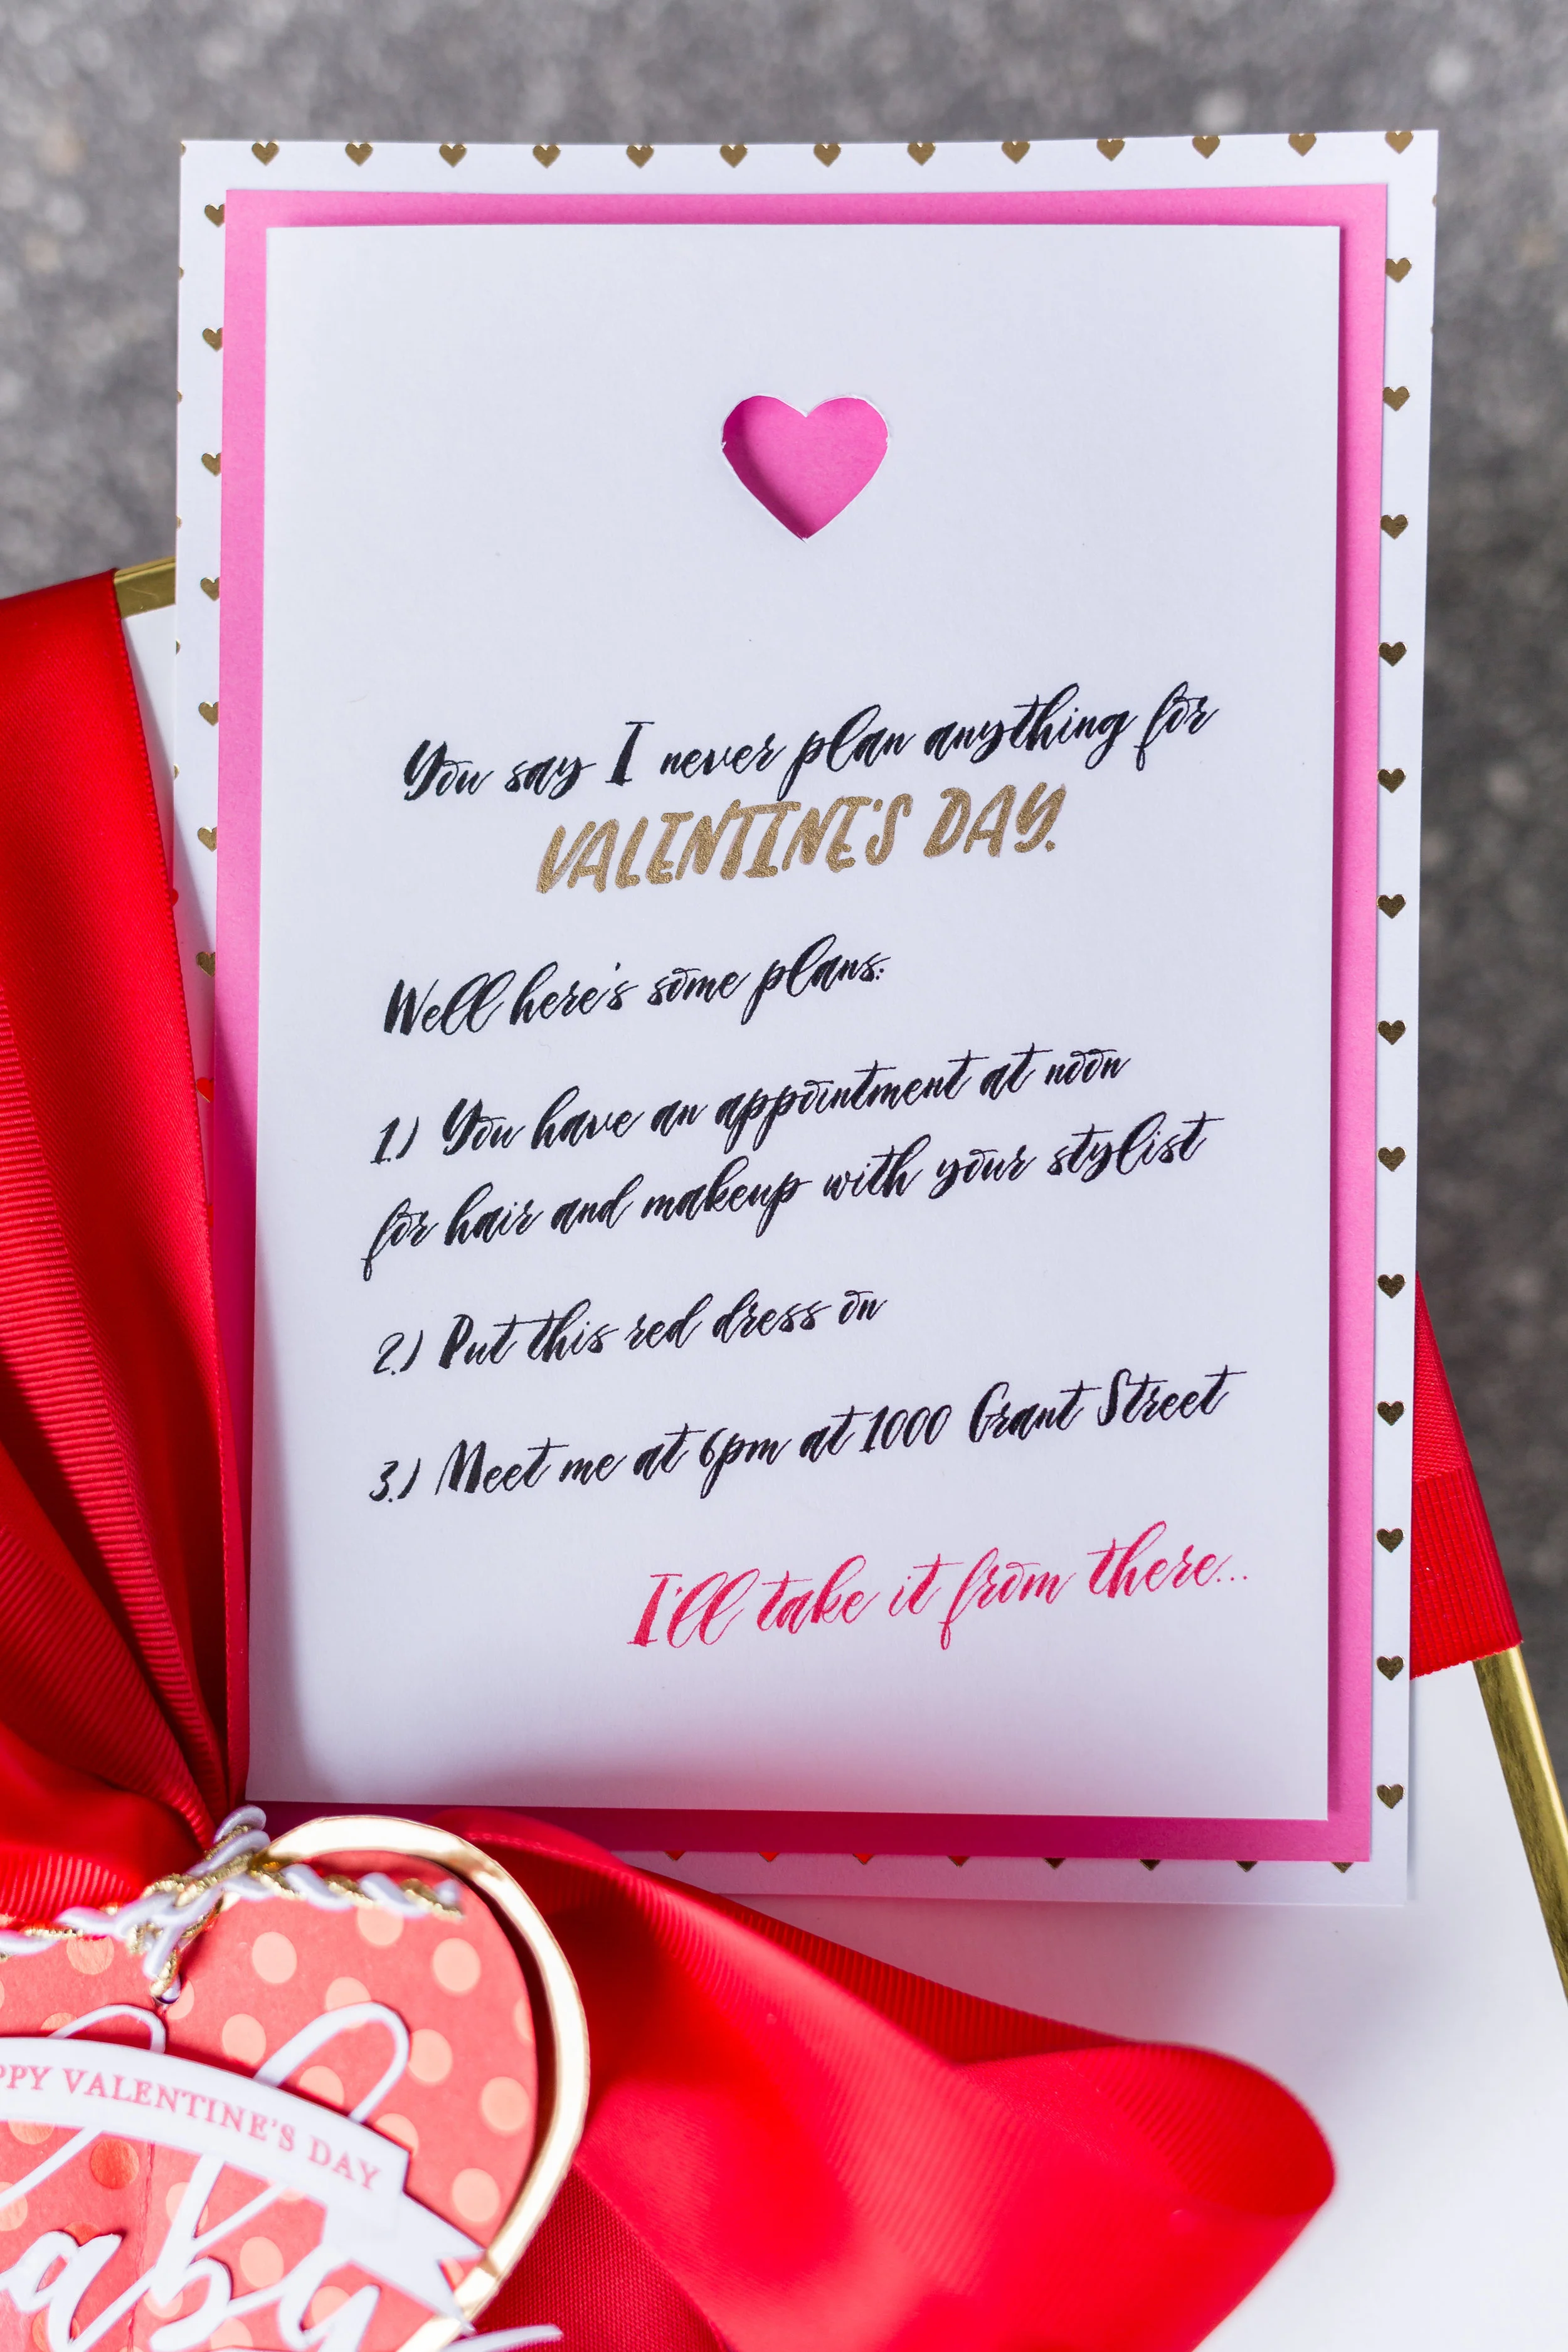 You say I never plan anything for
VALENTINE'S DAY.
Well here's some plans:
1.) You have an appointment at noon
for hair and makeup with your stylist
2.) Put this red dress on
3.) Meet me at 6pm at 1000 Grant Street
I'll take it from there...
VALENTINE'S DAY